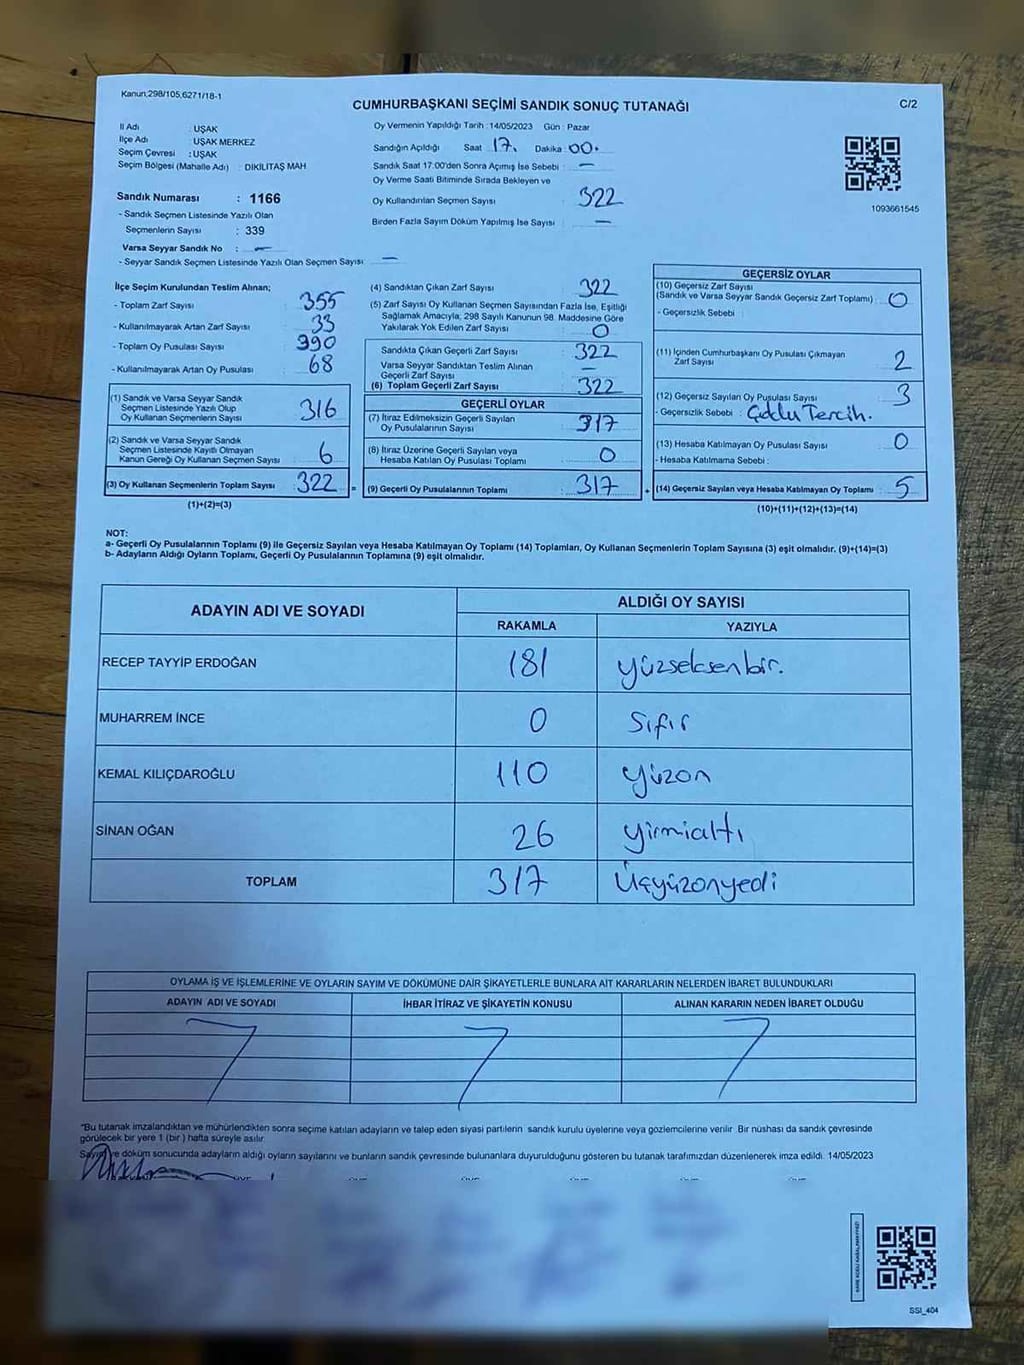 Kanun;298/105,6271/18-1
CUMHURBAŞKANI SEÇİMİ SANDIK SONUÇ TUTANAĞI
C/2
İl Adı : UŞAK
İlçe Adı : UŞAK MERKEZ
Seçim Çevresi : UŞAK
Seçim Bölgesi (Mahalle Adı) : DIKILITAŞ MAH
Oy Vermenin Yapıldığı Tarih : 14/05/2023 Gün : Pazar
Sandığın Açıldığı Saat 17. Dakika : 00.
Sandık Saat 17:00'den Sonra Açımış İse Sebebi : —
Oy Verme Saati Bitiminde Sırada Bekleyen ve
Oy Kullandırılan Seçmen Sayısı : 322
Birden Fazla Sayım Döküm Yapılmış İse Sayısı : —
1093661545
Sandık Numarası : 1166
- Sandık Seçmen Listesinde Yazılı Olan
Seçmenlerin Sayısı : 339
Varsa Seyyar Sandık No : —
- Seyyar Sandık Seçmen Listesinde Yazılı Olan Seçmen Sayısı : —
İlçe Seçim Kurulundan Teslim Alınan;
- Toplam Zarf Sayısı : 355
- Kullanılmayarak Artan Zarf Sayısı : 33
- Toplam Oy Pusulası Sayısı : 390
- Kullanılmayarak Artan Oy Pusulası : 68
(1) Sandık ve Varsa Seyyar Sandık
Seçmen Listesinde Yazılı Olup
Oy Kullanan Seçmenlerin Sayısı : 316
(2) Sandık ve Varsa Seyyar Sandık
Seçmen Listesinde Kayıtlı Olmayan
Kanun Gereği Oy Kullanan Seçmen Sayısı : 6
(3) Oy Kullanan Seçmenlerin Toplam Sayısı : 322 =
(1)+(2)=(3)
(4) Sandıktan Çıkan Zarf Sayısı : 322
(5) Zarf Sayısı Oy Kullanan Seçmen Sayısından Fazla İse, Eşitliği
Sağlamak Amacıyla; 298 Sayılı Kanunun 98. Maddesine Göre
Yakılarak Yok Edilen Zarf Sayısı : 0
Sandıkta Çıkan Geçerli Zarf Sayısı : 322
Varsa Seyyar Sandıktan Teslim Alınan
Geçerli Zarf Sayısı : —
(6) Toplam Geçerli Zarf Sayısı : 322
GEÇERLİ OYLAR
(7) İtiraz Edilmeksizin Geçerli Sayılan
Oy Pusulalarının Sayısı : 317
(8) İtiraz Üzerine Geçerli Sayılan veya
Hesaba Katılan Oy Pusulası Toplamı : 0
(9) Geçerli Oy Pusulalarının Toplamı : 317 +
GEÇERSİZ OYLAR
(10) Geçersiz Zarf Sayısı
(Sandık ve Varsa Seyyar Sandık Geçersiz Zarf Toplamı) : 0
- Geçersizlik Sebebi :
(11) İçinden Cumhurbaşkanı Oy Pusulası Çıkmayan
Zarf Sayısı : 2
(12) Geçersiz Sayılan Oy Pusulası Sayısı : 3
- Geçersizlik Sebebi : Çoklu Tercih.
(13) Hesaba Katılmayan Oy Pusulası Sayısı : 0
- Hesaba Katılmama Sebebi :
(14) Geçersiz Sayılan veya Hesaba Katılmayan Oy Toplamı : 5
(10)+(11)+(12)+(13)=(14)
NOT:
a- Geçerli Oy Pusulalarının Toplamı (9) ile Geçersiz Sayılan veya Hesaba Katılmayan Oy Toplamı (14) Toplamları, Oy Kullanan Seçmenlerin Toplam Sayısına (3) eşit olmalıdır. (9)+(14)=(3)
b- Adayların Aldığı Oyların Toplamı, Geçerli Oy Pusulalarının Toplamına (9) eşit olmalıdır.
ADAYIN ADI VE SOYADI
ALDIĞI OY SAYISI
RAKAMLA YAZIYLA
RECEP TAYYİP ERDOĞAN 181 yüzseksenbir.
MUHARREM İNCE 0 Sıfır
KEMAL KILIÇDAROĞLU 110 yüzon
SİNAN OĞAN 26 yirmialtı
TOPLAM 317 Üçyüzonyedi
OYLAMA İŞ VE İŞLEMLERİNE VE OYLARIN SAYIM VE DÖKÜMÜNE DAİR ŞİKAYETLERLE BUNLARA AİT KARARLARIN NELERDEN İBARET BULUNDUKLARI
ADAYIN ADI VE SOYADI İHBAR İTİRAZ VE ŞİKAYETİN KONUSU ALINAN KARARIN NEDEN İBARET OLDUĞU
"Bu tutanak imzalandıktan ve mühürlendikten sonra seçime katılan adayların ve talep eden siyasi partilerin sandık kurulu üyelerine veya gözlemcilerine verilir. Bir nüshası da sandık çevresinde
görülecek bir yere 1 (bir) hafta süreyle asılır.
Sayım ve döküm sonucunda adayların aldığı oyların sayılarını ve bunların sandık çevresinde bulunanlara duyurulduğunu gösteren bu tutanak tarafımızdan düzenlenerek imza edildi. 14/05/2023
SSI_404